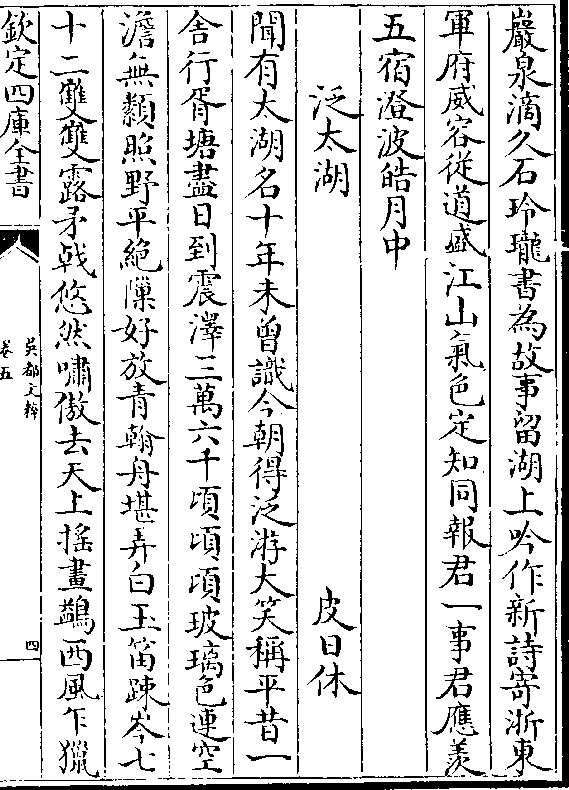 巖泉滴久石玲瓏書為故事留湖上吟作新詩寄浙東
軍府威容從道盛江山氣色定知同報君一事君應羨
五宿澄波皓月中
泛太湖　皮日休
聞有太湖名十年未曾識今朝得泛游大笑稱平昔一
舎行胥塘盡日到震澤三萬六千頃頃頃玻璃色連空
澹無纇照野平絶隟好放青翰舟堪弄白玉笛踈岑七
十二雙雙露矛㦸悠然嘯傲去天上摇畫鷁西風乍獵
欽定四庫全書
吳都文粹
卷五
四